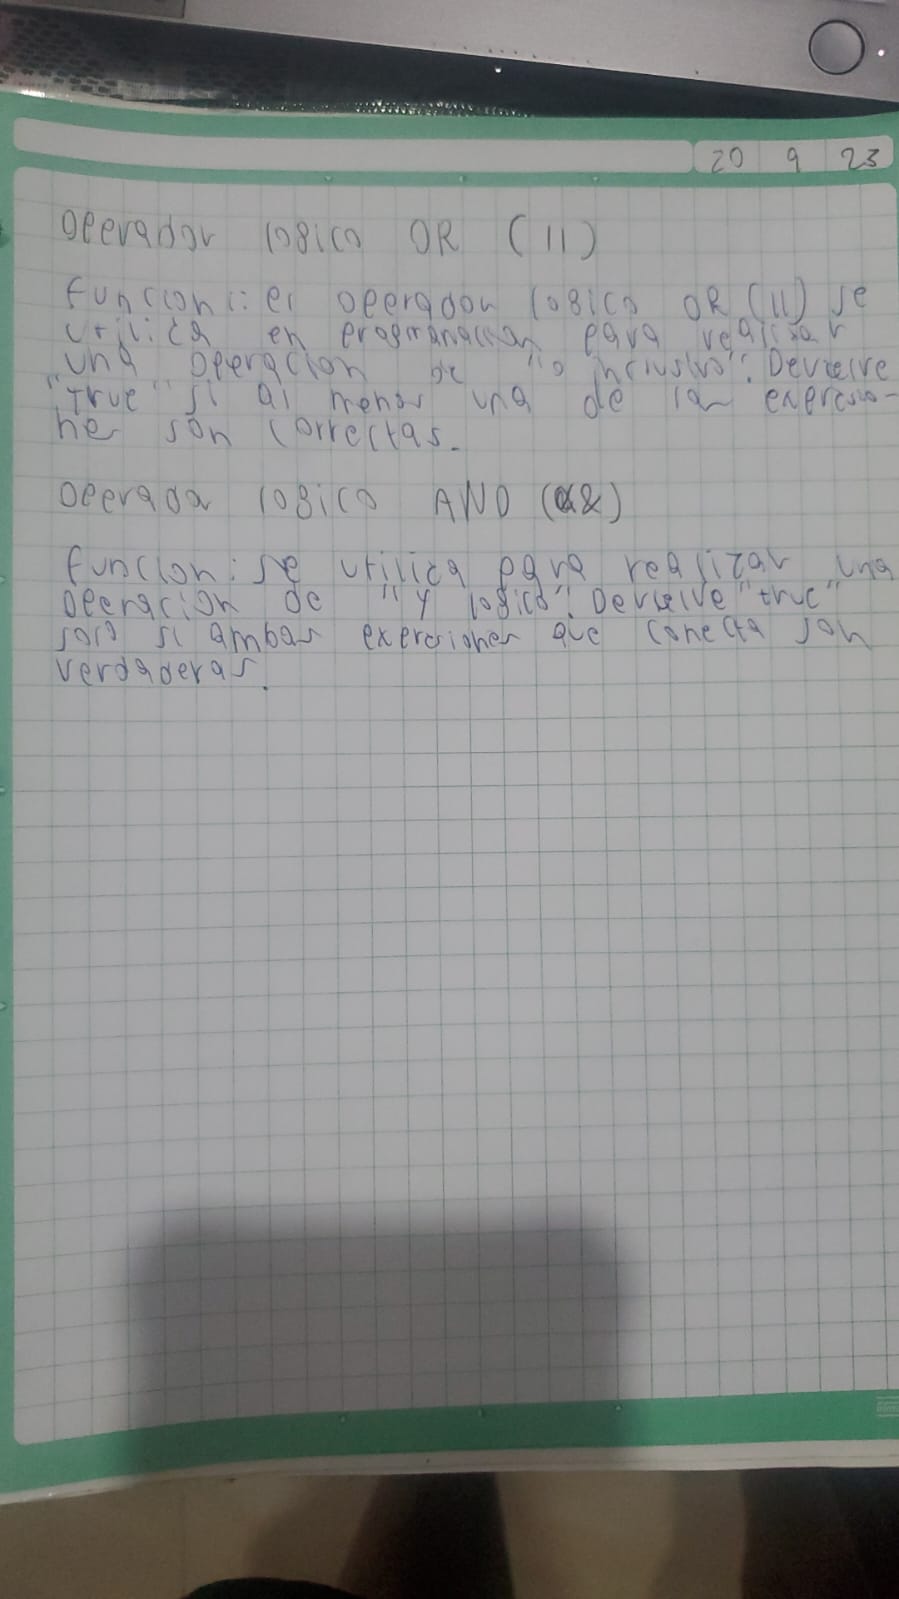 20 9 23
operador logico OR (||)
funcion: el operador logico OR (||) se
utilica en programacion para realisar
una operacion de "o inclusivo". Devuelve
"true" si al menos una de las expresio-
nes son correctas.
operado logico AND (&&)
funcion: se utilica para realizar una
operacion de "y logico". Devuelve "true"
solo si ambas expersiones que conecta son
verdaderas.